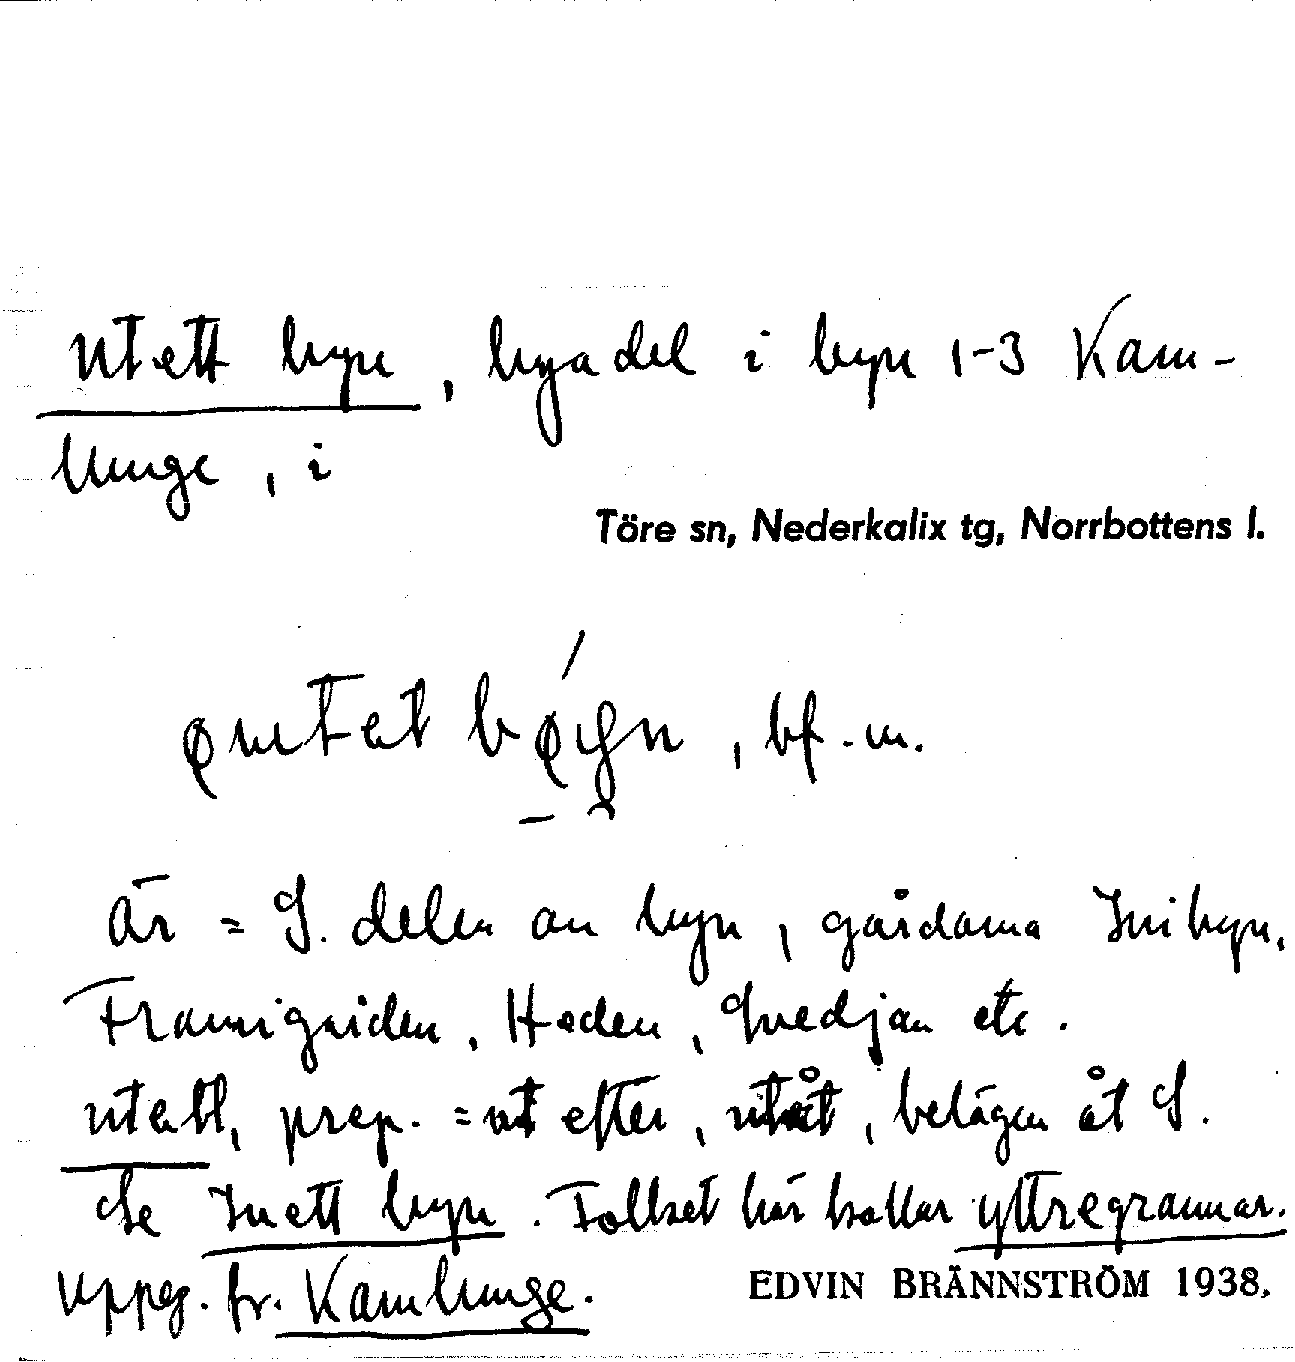 Utett byn, byadel i byn 1-3 Kam-
lunge, i
Töre sn, Nederkalix tg, Norrbottens l.
bf. m.
är = S. delen av byn, gårdarna Inibyn,
Framigården, Heden, Svedjan etc.
utett, prep. = ut efter, utåt, belägen åt S.
Se Inett byn. Folket här kallar yttregrannar.
Uppg. fr. Kamlunge.
EDVIN BRÄNNSTRÖM 1938.